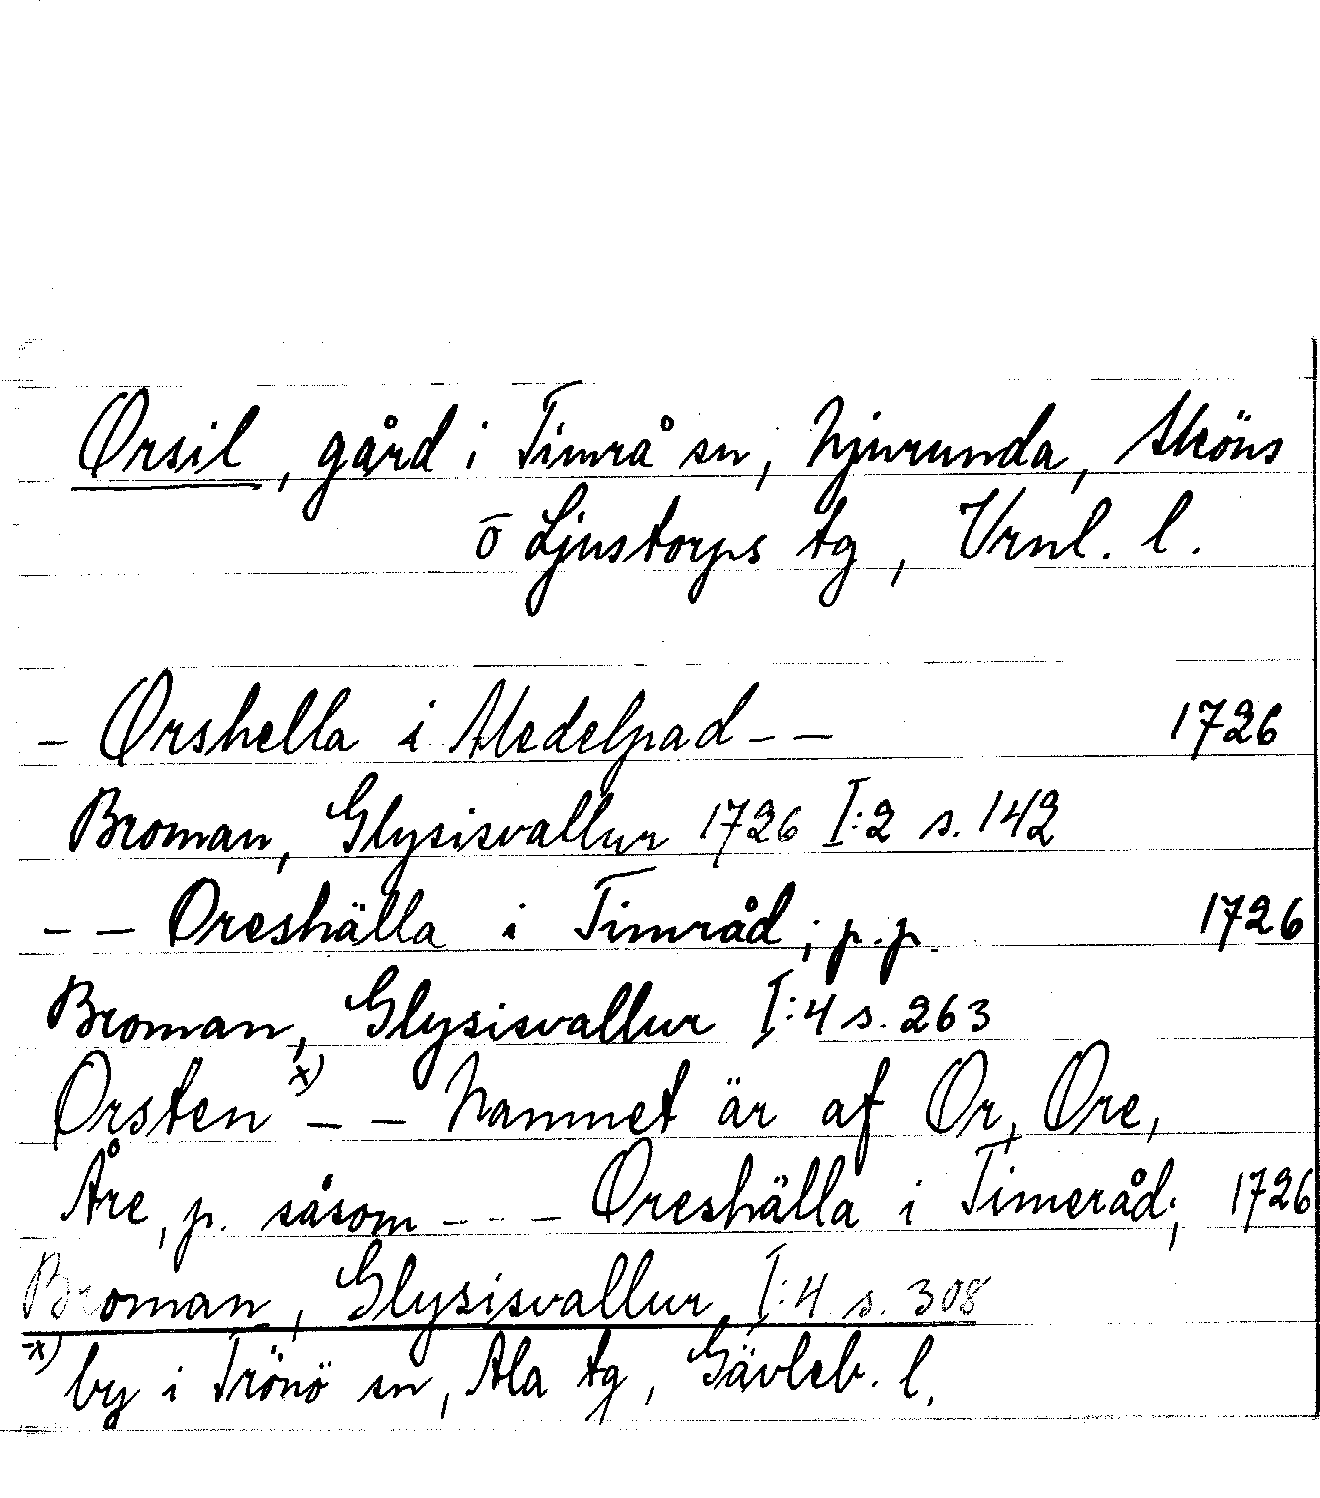 Orsil, gård i Timrå sn, Njurunda, Sköns
o Ljustorps tg, Vrnl. l.
– Orshella i Medelpad – – 1726
Broman, Glysisvallur 1726 I:2 s. 142
– – Oreshälla i Timråd; p.p. 1726
Broman, Glysisvallur I:4 s. 263
Orsten x) – – Namnet är af Or, Ore,
Åre, p. såsom – – – Oreshälla i Timeråd; 1726
Broman, Glysisvallur I:4 s. 308
x) by i Trönö sn, Ala tg, Gävleb. l.